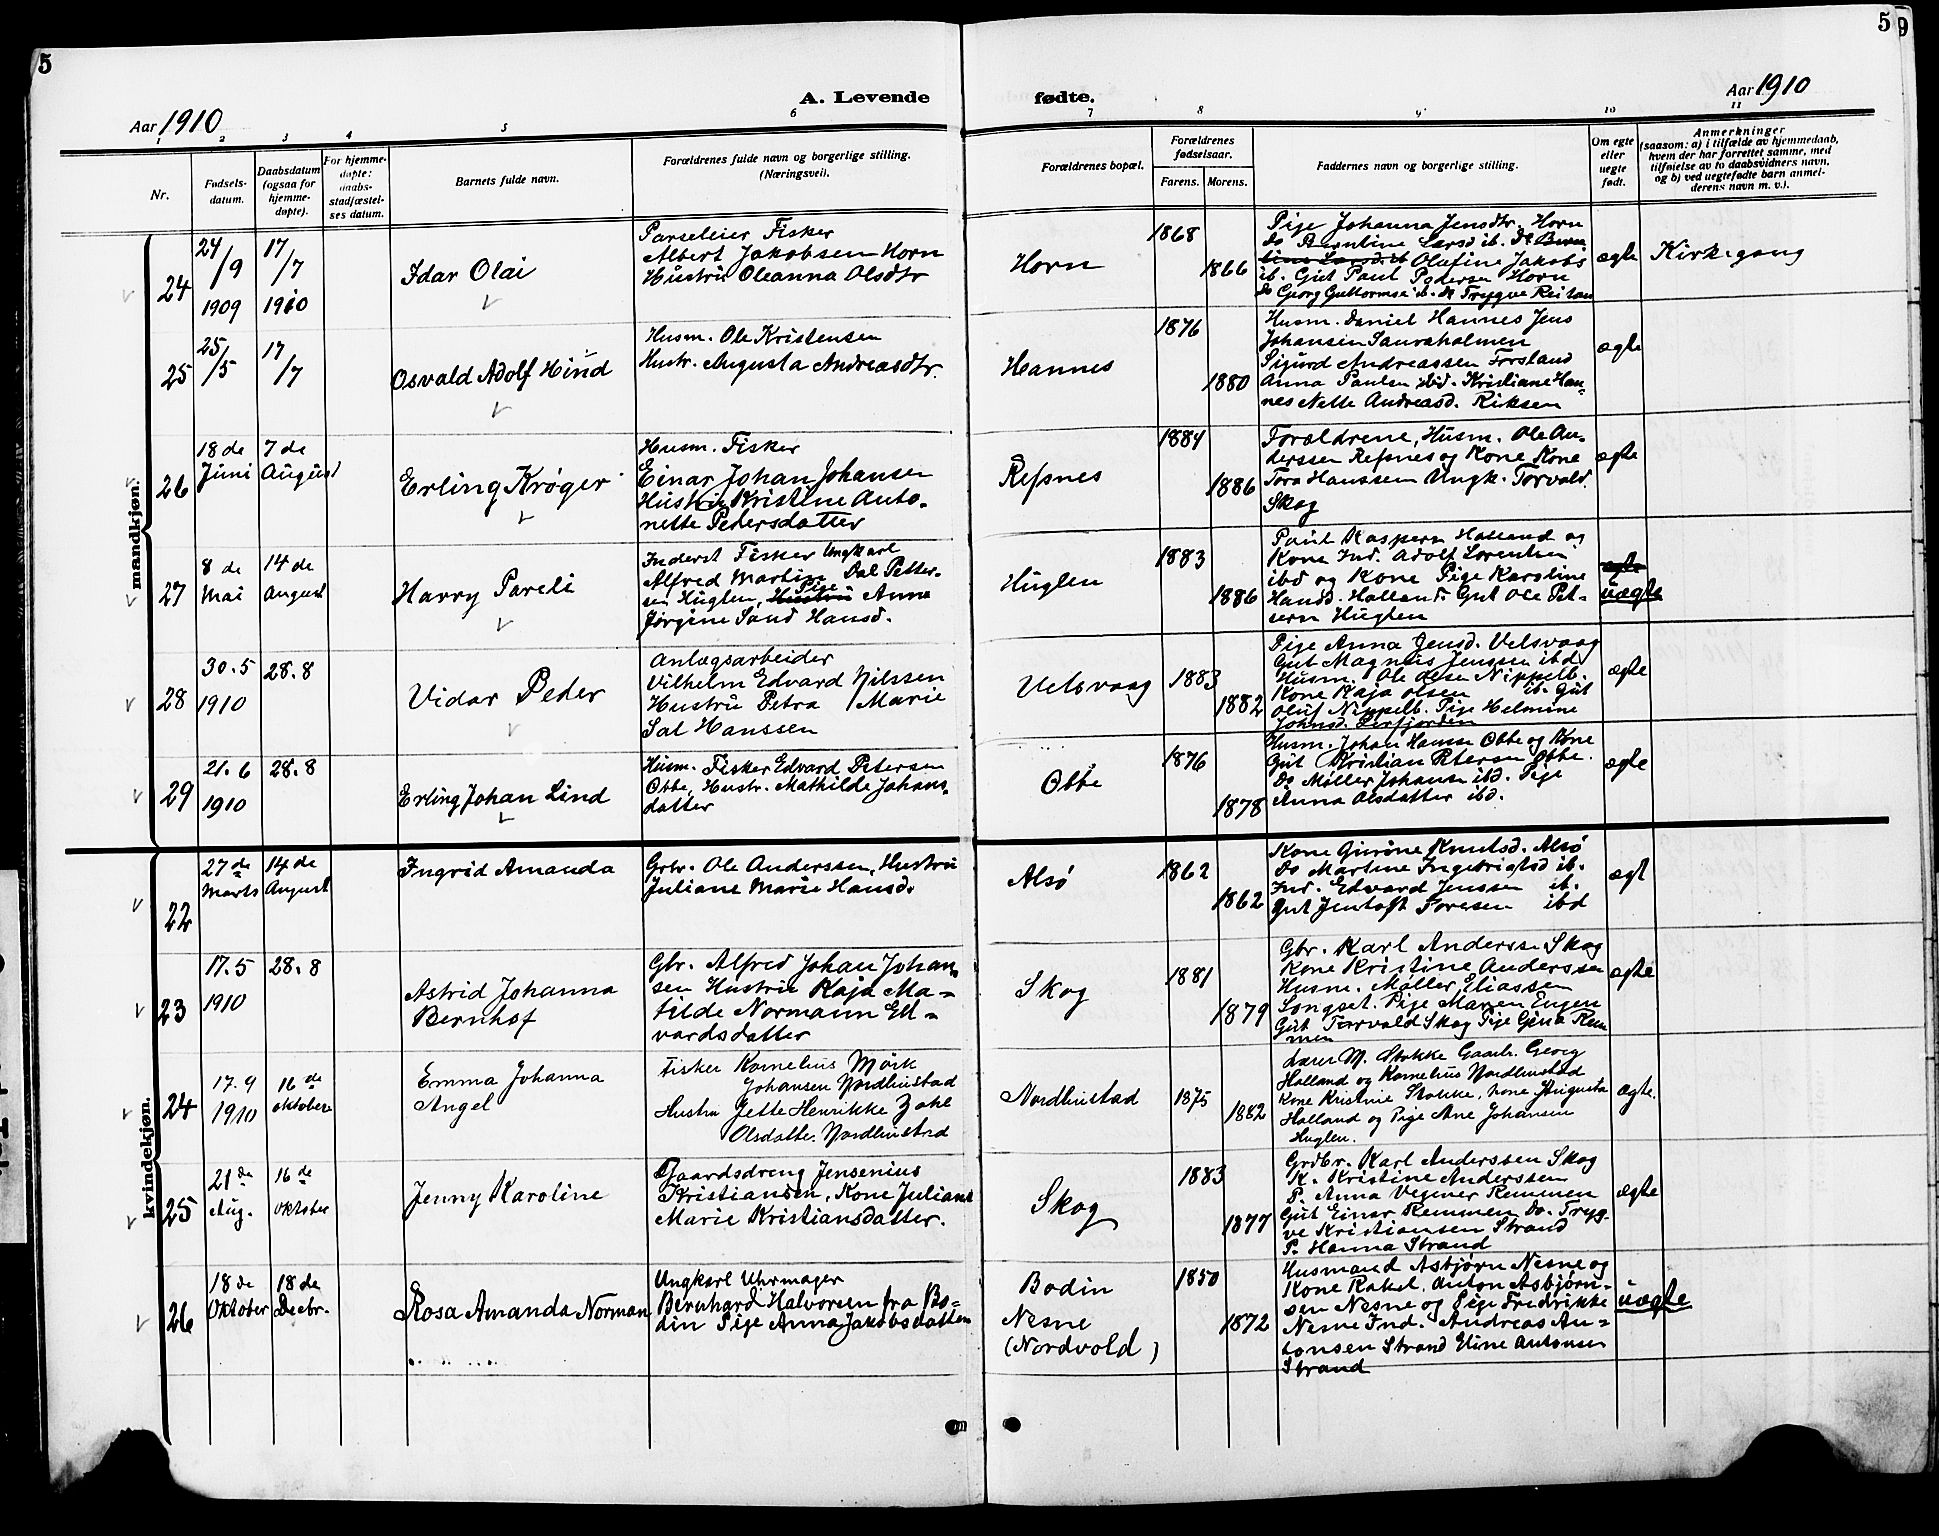 5
5
9
A. Levende
fødte.
Aar 1910
Aar 1910
1 2 3 4 5 6 7 8 9 10 11
Nr.
Fødsels-
datum.
Daabsdatum
(ogsaa for
hjemme-
døpte).
For hjemme-
døpte:
daabs-
stadfæstel-
ses datum.
Barnets fulde navn.
Forældrenes fulde navn og borgerlige stilling.
(Næringsvei).
Forældrenes bopæl.
Forældrenes
fødselsaar.
Farens. Morens.
Faddernes navn og borgerlige stilling.
Om egte
eller
uegte
født.
Anmerkninger
(saasom: a) i tilfælde av hjemmedaab,
hvem der har forrettet samme, med
tilføielse av to daabsvidners navn,
og b) ved uegtefødte barn anmel-
derens navn m. v.).
mandkjøn.
24
24/9
1909
17/7
1910
Idar Olai
Parseleier Fisker
Albert Jakobsen Horn
Hustru Oleanna Olsdtr
Horn
1868
1866
Pige Johanna Jensdtr. Horn
do Berntine Larsd ib. do Bern
tine Larsd ib Olufine Jakobs
ib. Gut Paul Pedersen Horn
do Georg Guttormse ib. do Trygve Reitan
ægte
Kirkegang
25
25/5
17/7
Osvald Adolf Hind
Husm. Ole Kristensen
Hustr. Augusta Andreasdtr.
Hannes
1876
1880
Husm. Daniel Hannes Jens
Johansen Sauraholmen
Sigurd Andreassen Forsland
Anna Paulsen ibd. Kristiane Han-
nes Nette Andreasd. Riksen
ægte
26
18 de
Juni
7 de
August
Erling Krøger
Husm. Fisker
Einar Johan Johansen
Hustru Kristine Anto-
nette Pedersdatter
Refsnes
1884
1886
Forældrene, Husm. Ole An-
derssen Refsnes og Kone Kone
Tora Hanssen Ungk. Torvald
Skog
ægte
27
8 de
Mai
14 de
August
Harry Pareli
Inderst Fisker Ungkarl
Alfred Martin Dal Petter-
sen Huglen, Hustru Pige Anna
Jørgine Sand Hansd.
Huglen
1883
1886
Paul Kaspersn Holland og
Kone Ind. Adolf Lorentsen
ibd og Kone Pige Karoline
Hansd. Holland. Gut Ole Pet-
sern Huglen
ægte
uægte
28
30.5
1910
28.8
Vidar Peder
Anlægsarbeider
Vilhelm Edvard Nilssen
Hustru Petra Marie
Sal Hanssen
Velsvaag
1883
1882
Pige Anna Jensd. Velsvaag
Gut Magnus Jenssen ibd
Husm. Ole Olsen Nippelb.
Kone Kaja Olsen ib. Gut
Oluf Nippelb. Pige Helmine
Johnsd.
ægte
29
21.6
1910
28.8
Erling Johan Lind
Husm. Fisker Edvard Petersen
Obbe, Hustr. Mathilde Johans-
datter
Obbe
1876
1878
Husm. Johan Hanse Obbe og Kone
Gut Kristian Petersen Obbe.
Do Møller Johanse ibd. Pige
Anna Olsdatter ibd.
ægte
kvindekjøn.
22
27 de
Marts
14 de
August
Ingrid Amanda
Grbr. Ole Anderssen, Hustru
Juliane Marie Hansd.
Alsø
1862
1862
Kone Gurine Knutsd. Alsø
Do Martine Ingebrigtsd ib.
Ind. Edvard Jenssen ib.
Gut Jentoft Toresen ibd
ægt
23
17.5
1910
28.8
Astrid Johanna
Bernhof
Gbr. Alfred Johan Johan-
sen Hustru Kaja Ma-
tilde Normann Ed-
vardsdatter
Skog
1881
1879
Gbr. Karl Anderss Skog
Kone Kristine Anderssen
Husm. Møller Eliassen
Longset. Pige Maren Eugen
Gut Torvald Skog Pige Gina Rem
men
ægte
24
17.9
1910
16 de
oktober
Emma Johanna
Angel
Fisker Kornelius Mørk
Johansen Nordhustad
Hustru Jette Henrikke Zahl
Olsdatte. Nordhustad
Nordhustad
1875
1882
Lærer M. Stokke Gaarb. Georg
Holland og Kornelius Nordhustad
Kone Kristine Stokke, Kone Augusta
Holland og Pige Ane Johansen
Huglen.
ægte.
25
21 de
Aug.
16 de
oktober
Jenny Karoline
Gaardsdreng Jensenius
Kristiansen, Kone Juliane
Marie Kristiansdatter.
Skog
1883
1877
Grdbr. Karl Anderssen Skog
K. Kristine Anderssen
P. Anna Vegener Remmen
Gut Einar Remmen Do. Tryg-
ve Kristiansen Strand
P. Hanna Strand
ægte
26
18 de
Oktober
18 de
Decbr.
Rosa Amanda Norman
Ungkarl Uhrmager
Bernhard Halvorsen fra Bo-
din Pige Anna Jakobsdatter
Bodin
Nesne
(Nordvold)
1850
1872
Husmand Asbjørn Nesne og
Kone Rakel. Anton Asbjørn-
sen Nesne og Pige Fredrikke
Nesne Ind. Andreas An-
tonsen Strand Eline Antonsen
Strand
uægte